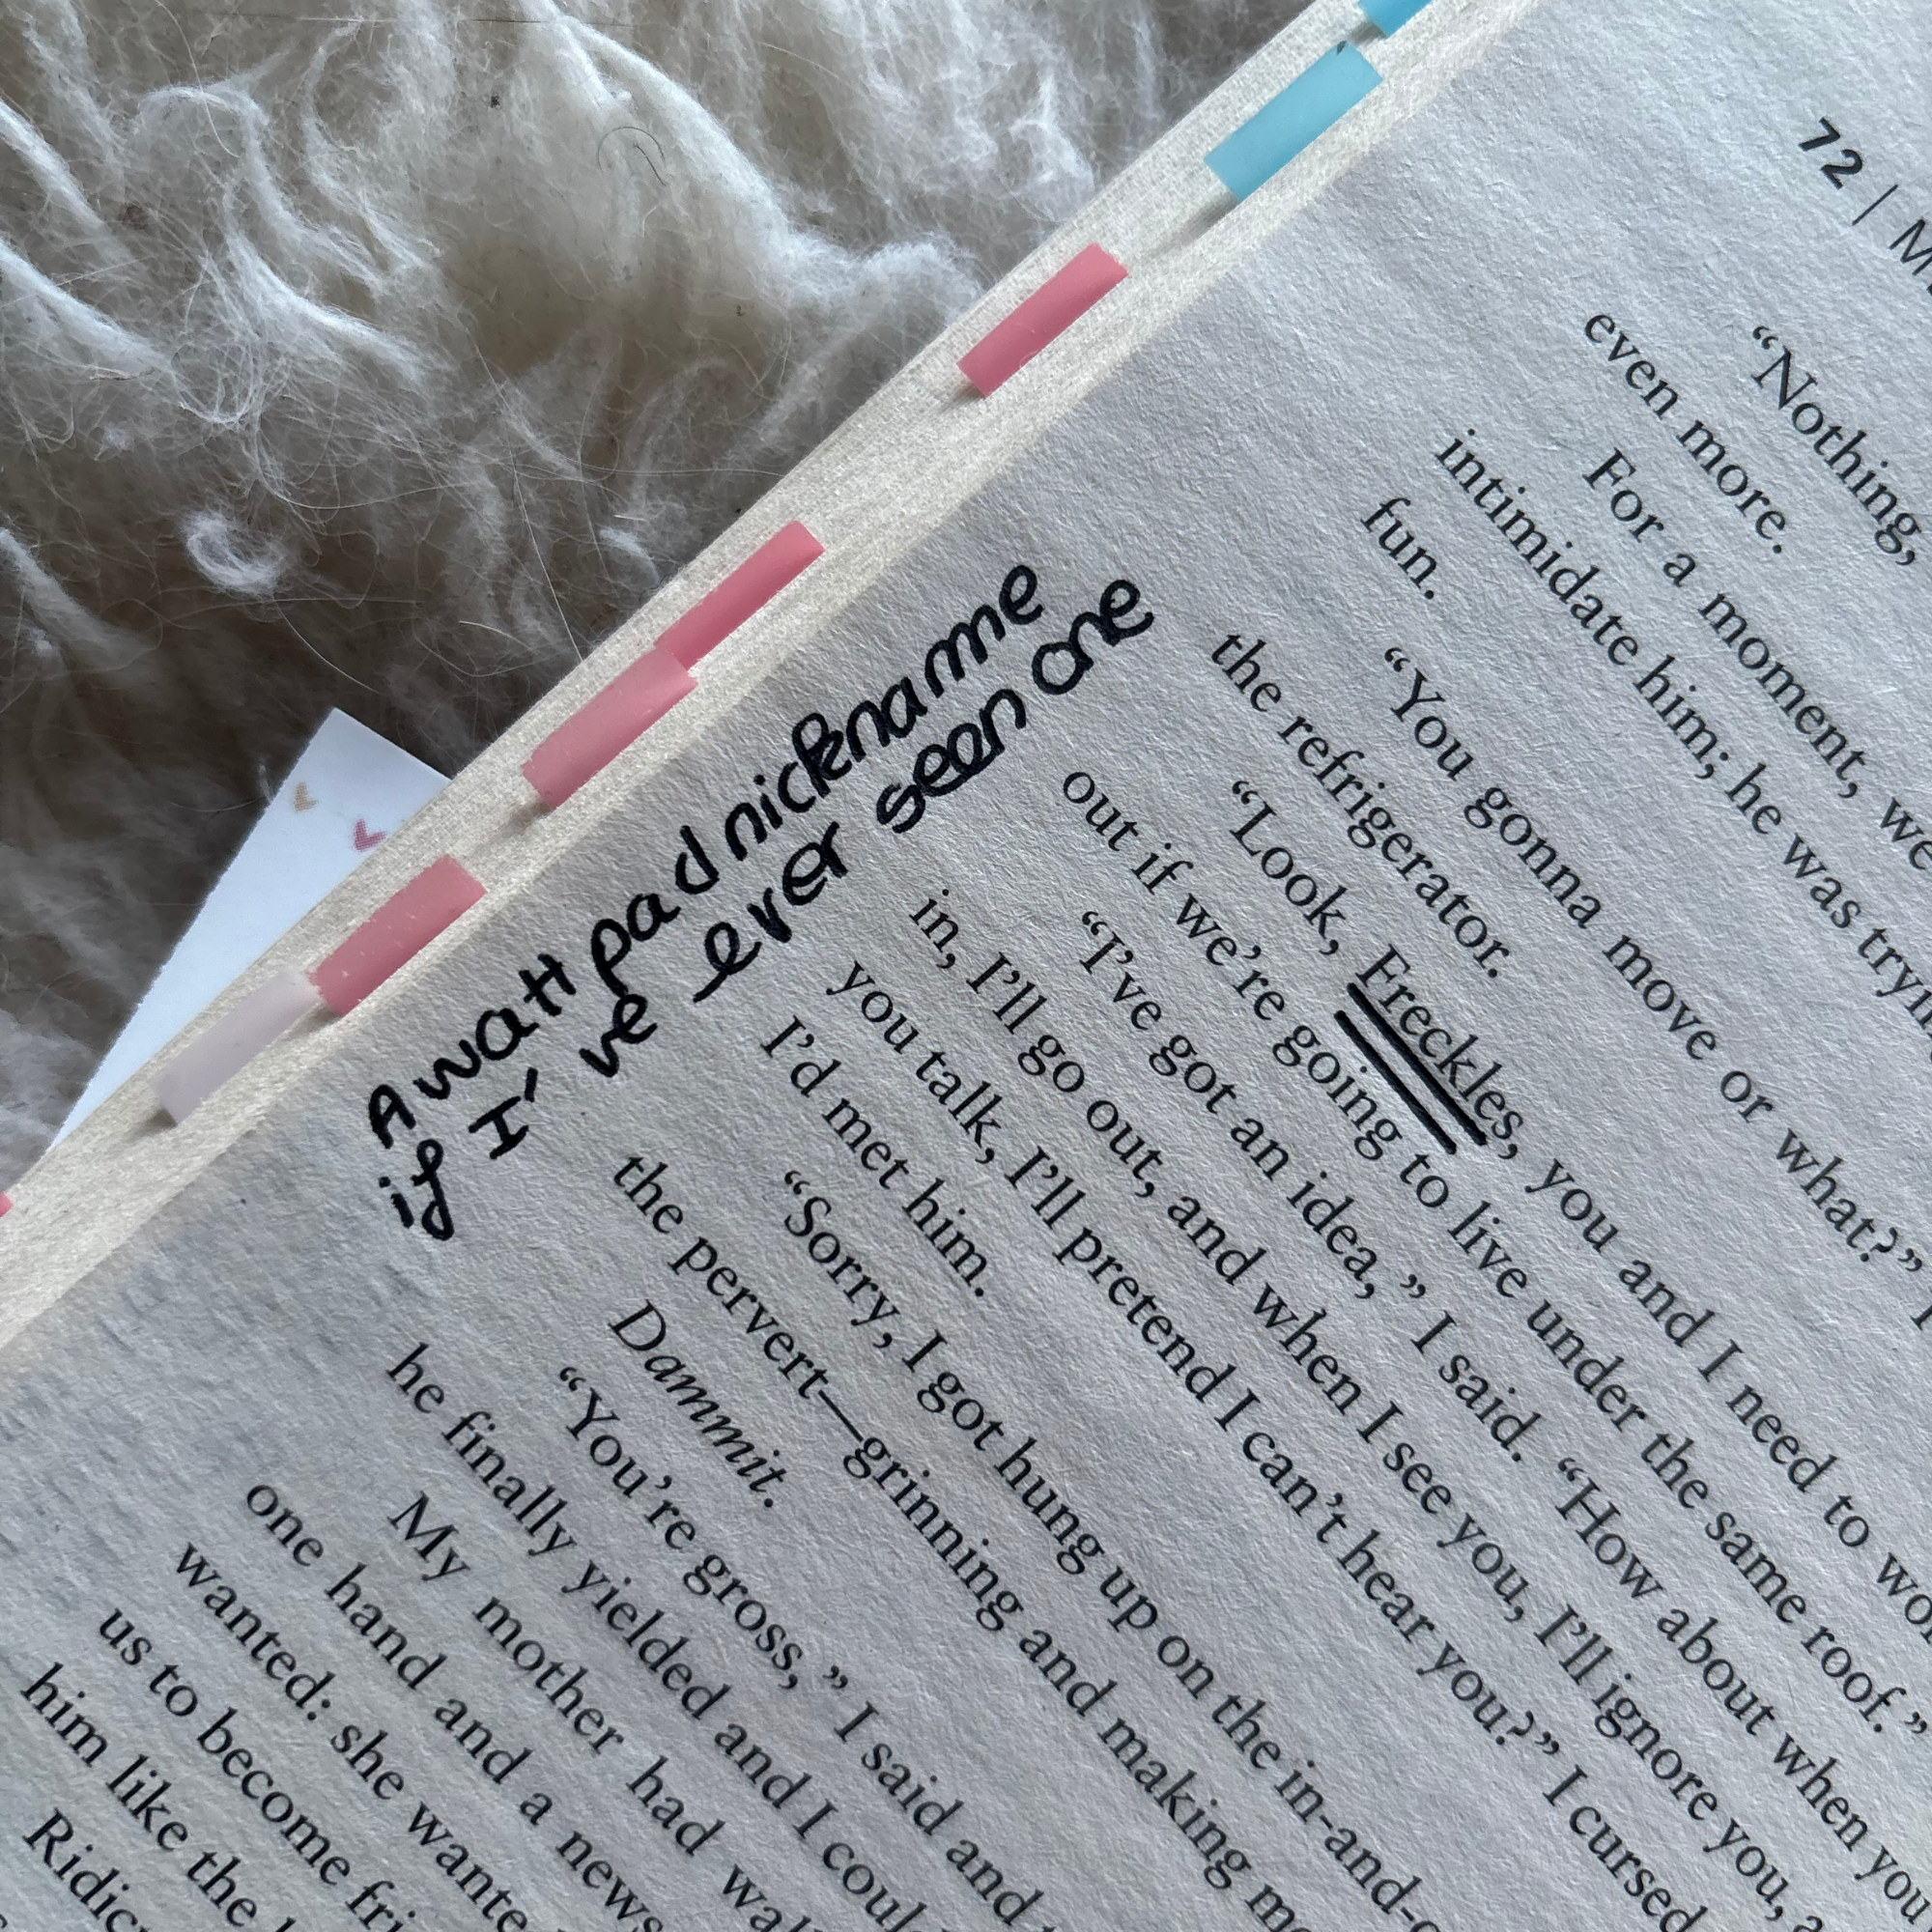 72 |
"Nothing,
even more.
For a moment, we
intimidate him; he was tryin
fun.
"You gonna move or what?"
the refrigerator.
"Look, Freckles, you and I need to wor
out if we're going to live under the same roof."
"I've got an idea," I said. "How about when you
in, I'll go out, and when I see you, I'll ignore you, a
you talk, I'll pretend I can't hear you?" I cursed
I'd met him.
"Sorry, I got hung up on the in-and-o
the pervert—grinning and making me
Dammit.
"You're gross," I said and
he finally yielded and I coul
My mother had wa
one hand and a news
wanted: she wante
us to become fri
him like the
Ridic
A watt pad nickname
if I've ever seen one